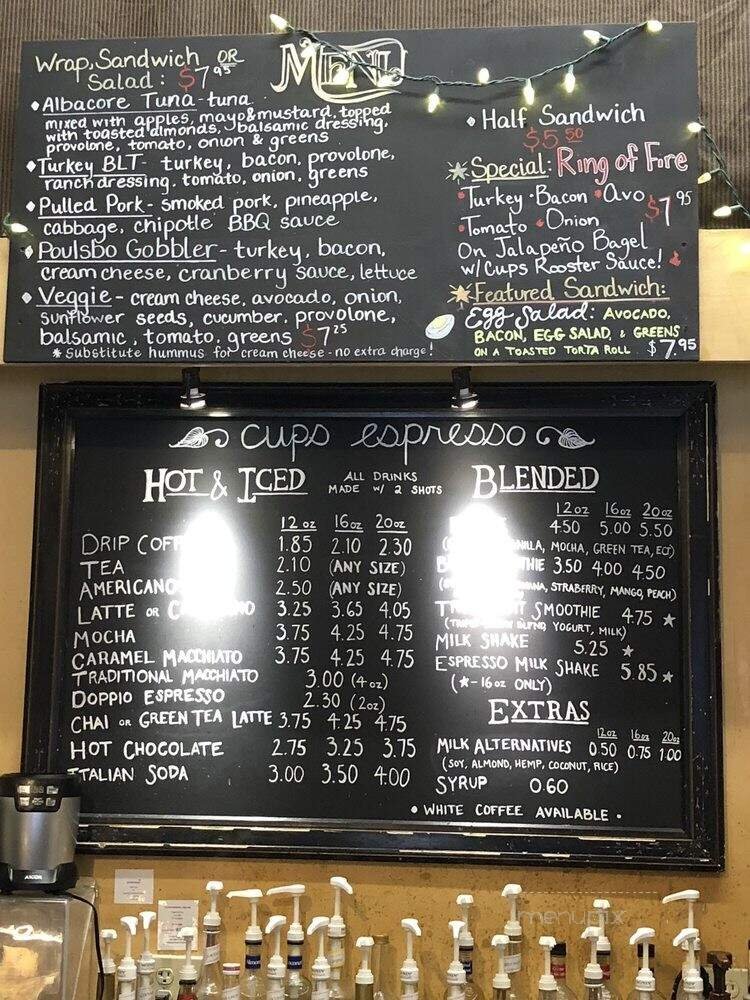 MENU
Wrap, Sandwich OR
Salad: $7.95
• Albacore Tuna - tuna
mixed with apples, mayo & mustard, topped
with toasted almonds, balsamic dressing,
provolone, tomato, onion & greens
• Turkey BLT - turkey, bacon, provolone,
ranch dressing, tomato, onion, greens
• Pulled Pork - smoked pork, pineapple,
cabbage, chipotle BBQ sauce
• Poulsbo Gobbler - turkey, bacon,
cream cheese, cranberry sauce, lettuce
• Veggie - cream cheese, avocado, onion,
sunflower seeds, cucumber, provolone,
balsamic, tomato, greens $7.25
* Substitute hummus for cream cheese - no extra charge!
• Half Sandwich
$5.50
Special: Ring of Fire
• Turkey • Bacon • Avo $7.95
• Tomato • Onion
On Jalapeño Bagel
w/ Cups Rooster Sauce!
Featured Sandwich:
Egg Salad: AVOCADO,
BACON, EGG SALAD, & GREENS
ON A TOASTED TORTA ROLL $7.95
cups espresso
HOT & ICED
ALL DRINKS
MADE W/ 2 SHOTS
12 oz 16 oz 20 oz
DRIP COFF 1.85 2.10 2.30
TEA 2.10 (ANY SIZE)
AMERICANO 2.50 (ANY SIZE)
LATTE OR 3.25 3.65 4.05
MOCHA 3.75 4.25 4.75
CARAMEL MACCHIATO 3.75 4.25 4.75
TRADITIONAL MACCHIATO 3.00 (4 oz)
DOPPIO ESPRESSO 2.30 (2 oz)
CHAI OR GREEN TEA LATTE 3.75 4.25 4.75
HOT CHOCOLATE 2.75 3.25 3.75
ITALIAN SODA 3.00 3.50 4.00
BLENDED
12 oz 16 oz 20 oz
4.50 5.00 5.50
MOCHA, GREEN TEA, ECT)
3.50 4.00 4.50
STRABERRY, MANGO, PEACH)
SMOOTHIE 4.75 ★
YOGURT, MILK)
MILK SHAKE 5.25 ★
ESPRESSO MILK SHAKE 5.85 ★
(★ - 16 oz ONLY)
EXTRAS
12 oz 16 oz 20 oz
MILK ALTERNATIVES 0.50 0.75 1.00
(SOY, ALMOND, HEMP, COCONUT, RICE)
SYRUP 0.60
• WHITE COFFEE AVAILABLE •
menupix